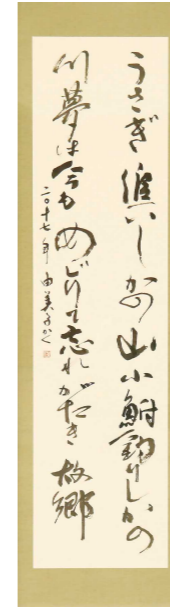 うさぎ追いしかの山小鮒釣りしかの
川夢は今もめぐりて忘れがたき故郷
二〇十七年 由美子かく